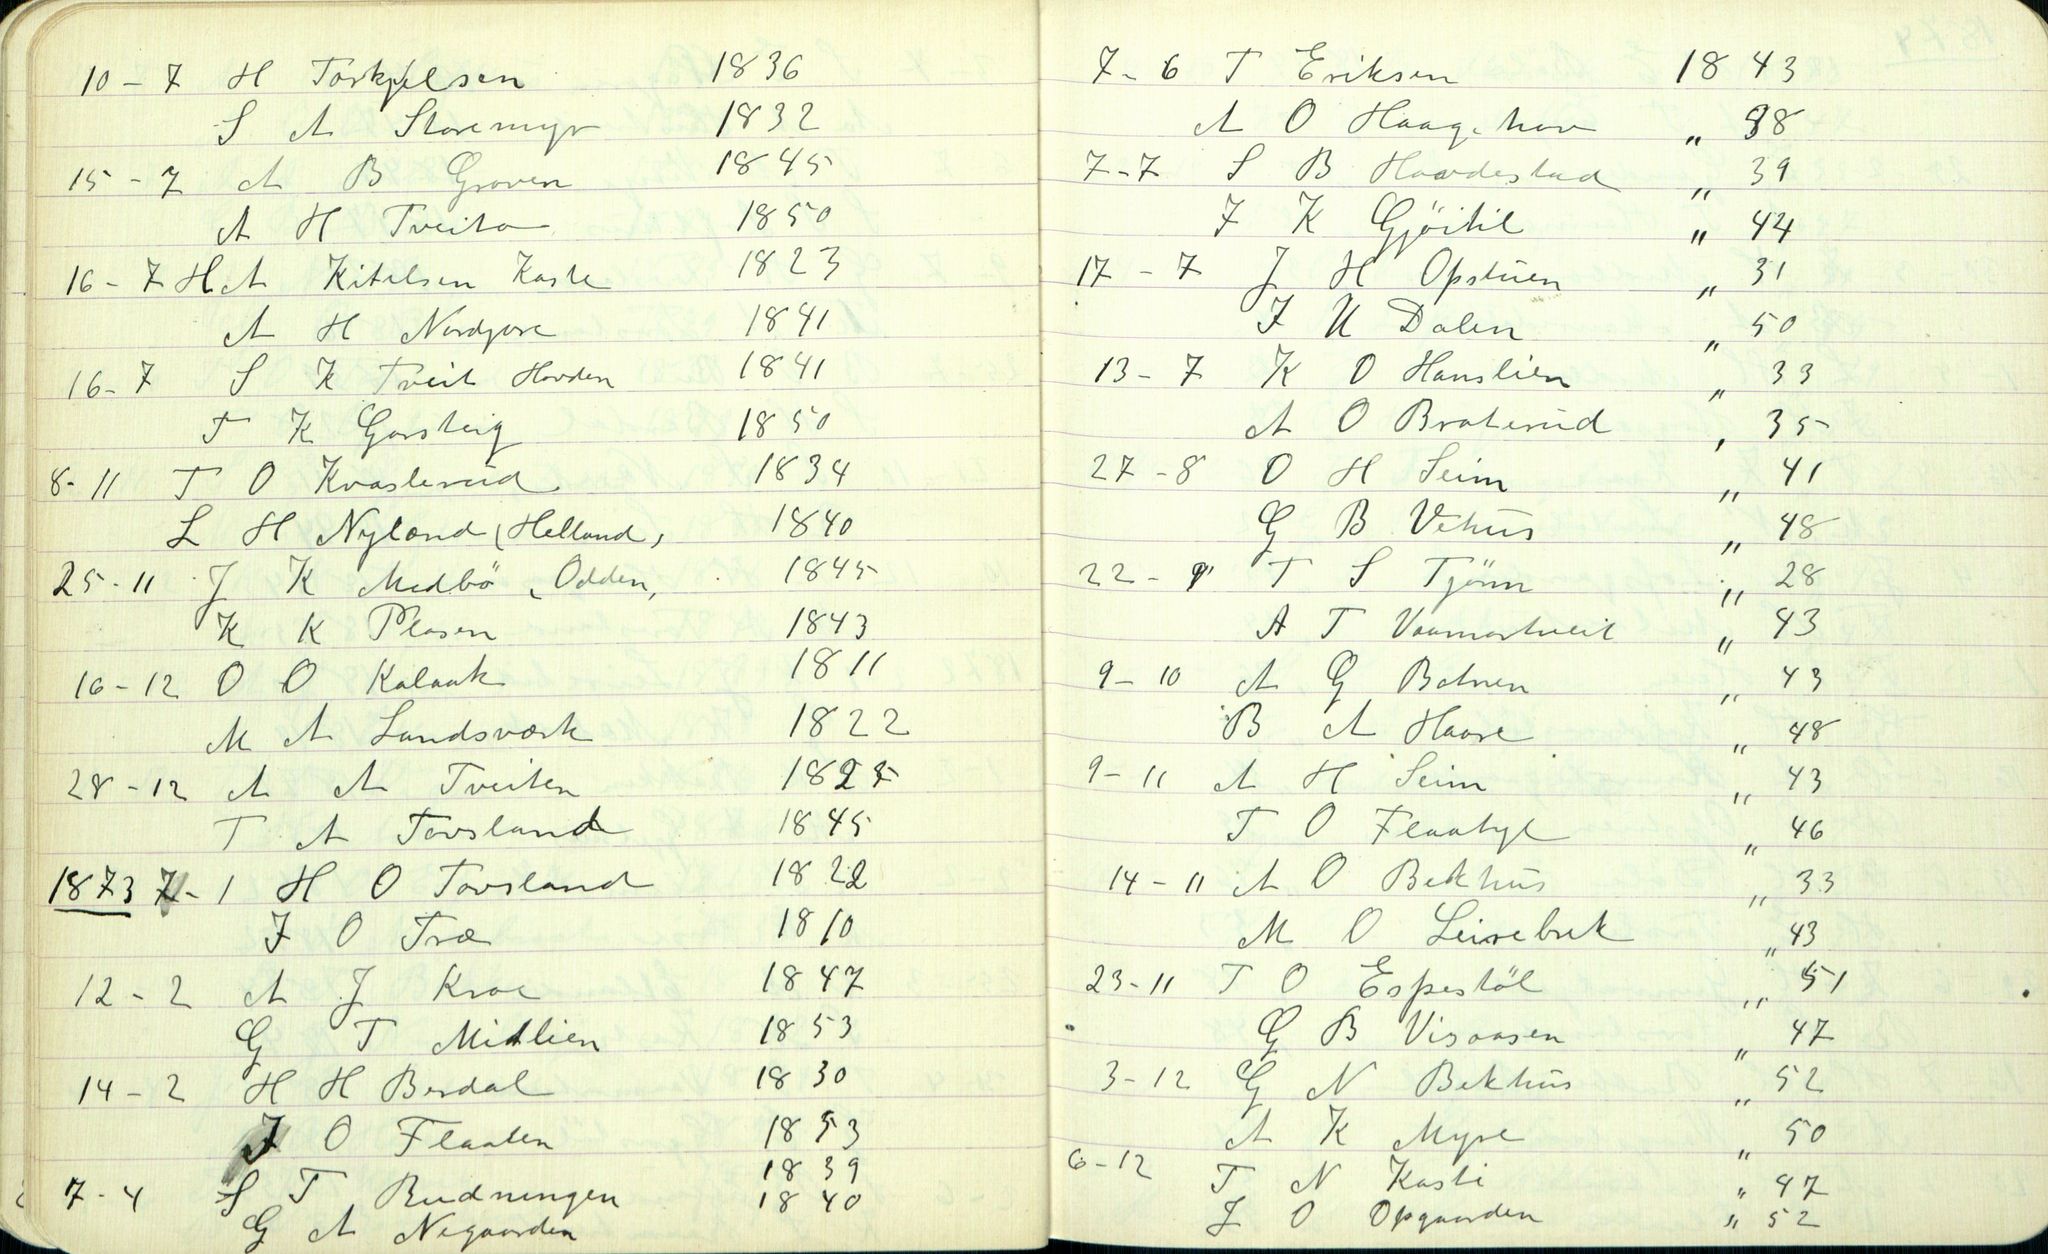 10 - 7 H Torkjelsen 1836
S A Storemyr 1832
15 - 7 A B Groven 1845
A H Tveito 1850
16 - 7 H A Kitilsen Kasle 1823
A H Nordjore 1841
16 - 7 S K Tveit Hovden 1841
T K Garsteig 1850
8 - 11 T O Kvaslerud 1834
L H Nyland (Helland, 1840
25 - 11 J K Medbö (Odden, 1845
K K Plasen 1843
16 - 12 O O Kalaak 1811
M A Landsværk 1822
28 - 12 A A Tveiten 1825
T A Tovsland 1845
1873 7 - 1 H O Tovsland 1822
J O Træ 1810
12 - 2 A J Kroe 1847
G T Midlien 1853
14 - 2 H H Berdal 1830
J O Flaaten 1853
7 - 4 S T Rudningen 1839
G A Negaarden 1840
7 - 6 T Eriksen 1843
A O Haagehov " 38
7 - 7 S B Haavdestad " 39
J K Gjöitil " 44
17 - 7 J H Opstuen " 31
J U Dalen " 50
13 - 7 K O Hanslien " 33
A O Braterud " 35
27 - 8 O H Seim " 41
G B Vehus " 48
22 - 9 T S Tjönn " 28
A T Vaamartveit " 43
9 - 10 A G Botnen " 43
B A Haave " 48
9 - 11 A H Seim " 43
T O Flaatyl " 46
14 - 11 A O Bekhus " 33
M O Leirebek " 43
23 - 11 T O Espestöl " 51
G B Visaasen " 47
3 - 12 G N Bekhus " 52
A K Myre " 50
6 - 12 T N Kasti " 47
J O Opgaarden " 52